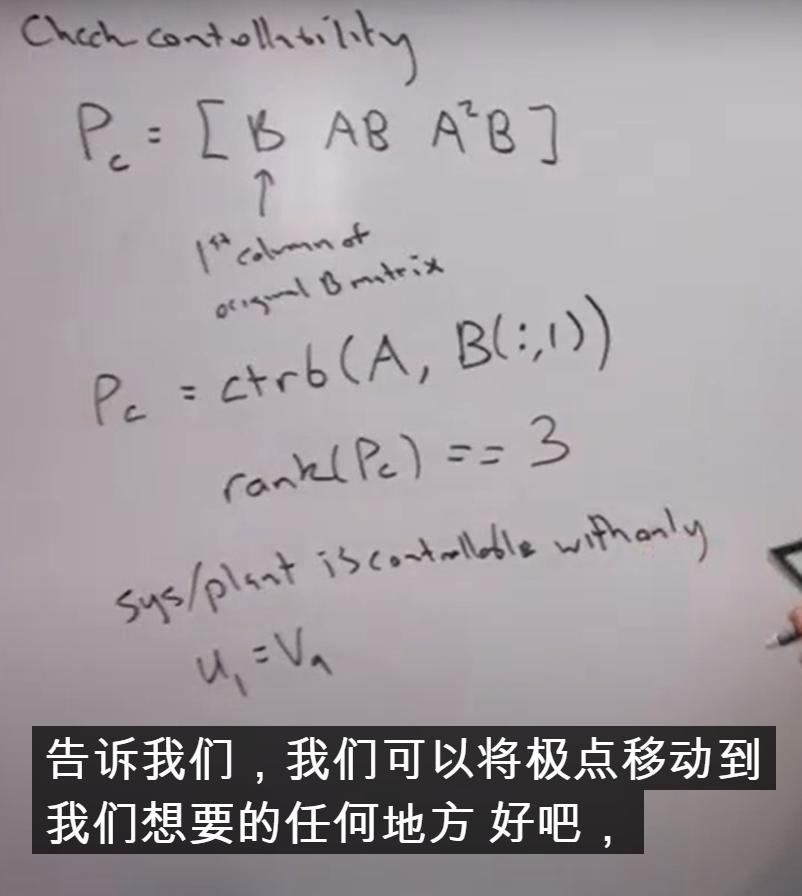 Check controllability
Pc = [B AB A²B]
↑
1st column of
original B matrix
Pc = ctrb(A, B(:,1))
rank(Pc) == 3
sys/plant is controllable with only
u₁ = Va
告诉我们，我们可以将极点移动到
我们想要的任何地方 好吧，